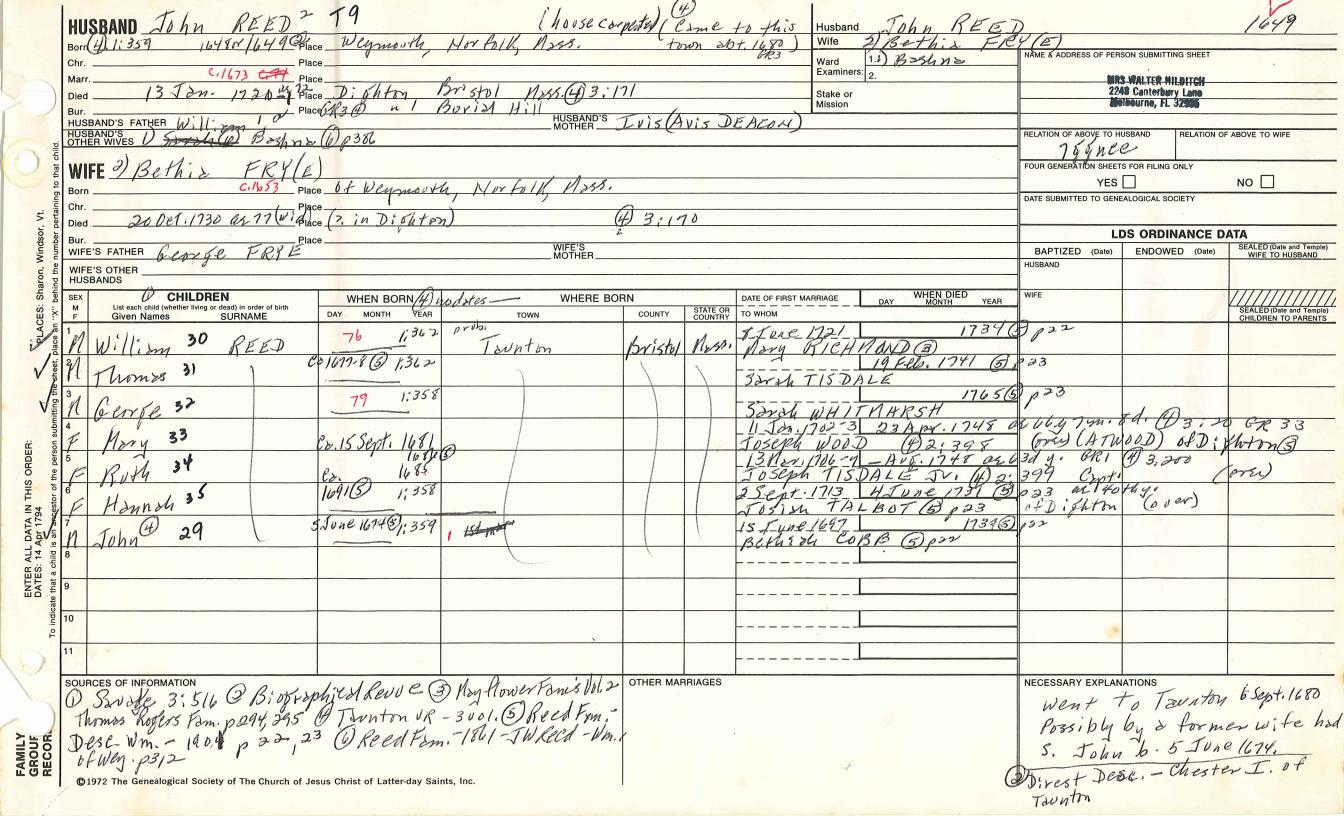 HUSBAND John REED 2 T9 (housecarpenter) (4) (Came to this
Born (4) 1:359 1648 or 1649 (2) Place Weymouth, Norfolk, Mass. town abt. 1680) GR3
Chr. Place
Marr. c.1673 Place
Died 13 Jan. 1720-1 Place Dighton Bristol Mass. (4) 3:171
Bur. Place GR3 (4) Burial Hill
HUSBAND'S FATHER William 1 HUSBAND'S MOTHER Ivis (Avis DEACON)
HUSBAND'S OTHER WIVES 1) Bashna (6) p386
WIFE 2) Bethia FRY(E)
Born c.1653 Place of Weymouth, Norfolk, Mass.
Chr. Place
Died 20 Oct. 1730 ae 77 (wid) Place (?. in Dighton) (4) 3:170
Bur. Place
WIFE'S FATHER George FRYE WIFE'S MOTHER
WIFE'S OTHER HUSBANDS
Husband John REED 1649
Wife 2) Bethia FRY(E)
Ward Examiners: 1. 1) Bashna
2.
Stake or Mission
NAME & ADDRESS OF PERSON SUBMITTING SHEET
MRS WALTER HILDITCH
2248 Canterbury Lane
Melbourne, FL 32935
RELATION OF ABOVE TO HUSBAND RELATION OF ABOVE TO WIFE
FOUR GENERATION SHEETS FOR FILING ONLY
YES NO
DATE SUBMITTED TO GENEALOGICAL SOCIETY
LDS ORDINANCE DATA
BAPTIZED (Date) ENDOWED (Date) SEALED (Date and Temple) WIFE TO HUSBAND
HUSBAND
WIFE
SEALED (Date and Temple) CHILDREN TO PARENTS
SEX M F (1) CHILDREN WHEN BORN (4) no dates — WHERE BORN DATE OF FIRST MARRIAGE WHEN DIED
List each child (whether living or dead) in order of birth
Given Names SURNAME DAY MONTH YEAR TOWN COUNTY STATE OR COUNTRY TO WHOM DAY MONTH YEAR
1 M William 30 REED 76 1:362 prob. Taunton Bristol Mass. 8 June 1721 1734 (5) p22
Mary RICHMOND (3)
2 M Thomas 31 Ca 1677-8 (5) 1:362 19 Feb. 1741 (5) p23
Sarah TISDALE
3 M George 32 79 1:358 1765 (5) p23
Sarah WHITMARSH
4 F Mary 33 Ca. 15 Sept. 1681 11 Jan. 1702-3 23 Apr. 1748 ae 66 y 7m. 8d. (4) 3:20 GR 33
Joseph WOOD (4) 2:398 (over) (ATWOOD) of Dighton (5)
5 F Ruth 34 Ca. 1685 13 Mar. 1706-7 — Aug. 1748 ae 63d y. GR1 (4) 3,200
JOSEPH TISDALE Jr. (4) 2:399 Capt. (over)
6 F Hannah 35 1691 (5) 1:358 2 Sept. 1713 4 June 1739 (5) p23
Josiah TALBOT (5) p23 of Dighton (over)
7 M John (4) 29 5 June 1674 (5) 1:359 15 June 1697 1739 (5) p22
Bethiah COBB (5) p22
8
9
10
11
SOURCES OF INFORMATION
(1) Savage 3:516 (2) Biographical Revue (3) Mayflower Fam's Vol. 2
Thomas Rogers Fam. p294, 295 (4) Taunton VR - 3 vol. (5) Reed Fm.-
Desc. Wm. - 1901 p 22, 23 (6) Reed Fam. - 1861 - JW Reed - Wm.
of Wey. p312
OTHER MARRIAGES
NECESSARY EXPLANATIONS
Went to Taunton 6 Sept. 1680
Possibly by a former wife had
S. John b. 5 June 1674.
(2) Direct Desc. - Chester I. of
Taunton
©1972 The Genealogical Society of The Church of Jesus Christ of Latter-day Saints, Inc.
FAMILY GROUP RECOR
ENTER ALL DATA IN THIS ORDER:
DATES: 14 Apr 1794 PLACES: Sharon, Windsor, Vt.
To indicate that a child is an ancestor of the person submitting the sheet, place an "X" behind the number pertaining to that child.